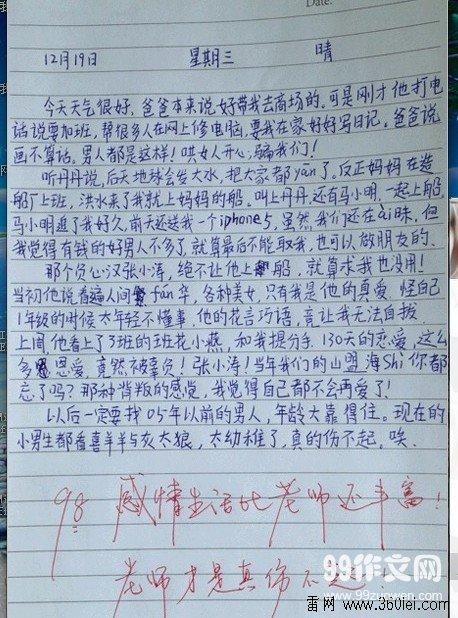 Date:
12月19日 星期三 晴
今天天气很好,爸爸本来说好带我去商场的,可是刚才他打电
话说要加班,帮很多人在网上修电脑,要我在家好好写日记。爸爸说
画不算话。男人都是这样!哄女人开心,骗我们!
听丹丹说,后天地球会发大水,把大家都yan了。反正妈妈在造
船厂上班,洪水来了我就上妈妈的船。叫上丹丹,还有马小明,一起上船
马小明追了我好久,前天还送我一个iphone5,虽然我们还在ai昧,但
我觉得有钱的好男人不多了,就算最后不能取我,也可以做朋友的、
那个负心汉张小涛,绝不让他上船,就算求我也没用!
当初他说看遍人间fán华,各种美女,只有我是他的真爱 怪自己
1年级的时候太年轻不懂事,他的花言巧语,竟让我无法自拔
上周他看上了3班的班花小燕,和我提分手,130天的恋爱,这么
多恩爱,竟然被辜负!张小涛!当年我们的山盟海Shi你都
忘了吗?那种背叛的感觉,我觉得自己都不会再爱了!
以后一定要找05年以前的男人,年龄大靠得住。现在的
小男生都看喜羊羊与灰太狼,太幼稚了,真的伤不起。唉、
98 感情生活比老师还丰富!
老师才是真伤不起!
99作文网
www.99zuowen.com
雷网_www.360lei.com